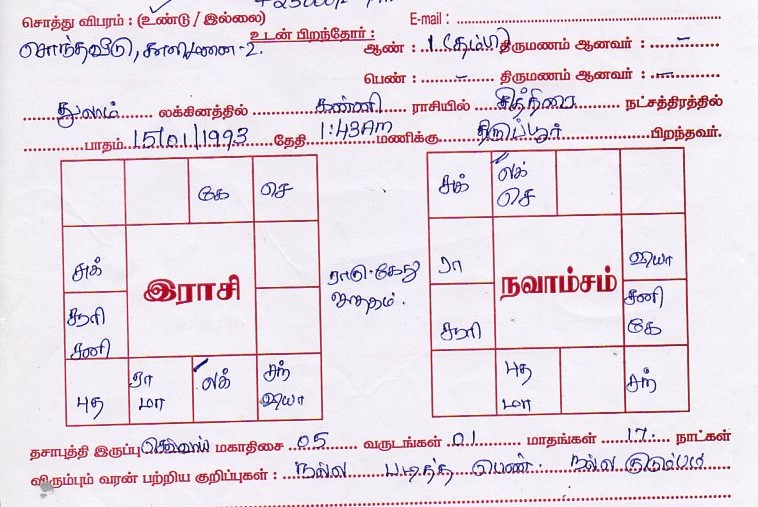 + 25000/-
சொத்து விபரம் : (உண்டு / இல்லை) E-mail :
உடன் பிறந்தோர் :
சொந்தவீடு, காலிமனை-2. ஆண் : 1 (தம்பி) திருமணம் ஆனவர் : -
பெண் : - திருமணம் ஆனவர் : -
துலாம் லக்கினத்தில் கன்னி ராசியில் சித்திரை நட்சத்திரத்தில்
பாதம் 15/01/1993 தேதி 1:43AM மணிக்கு திருப்பூர் பிறந்தவர்.
கே செ
சுக்
இராசி
சூரி
சனி
புத
ரா
மா
லக்
சந்
வியா
ராகு-கேது
சுத்தம்.
சுக்
லக்
செ
ரா
நவாம்சம்
வியா
சூரி
சனி
கே
புத
மா
சந்
தசாபுத்தி இருப்பு செவ்வாய் மகாதிசை 05 வருடங்கள் 01 மாதங்கள் 17 நாட்கள்
விரும்பும் வரன் பற்றிய குறிப்புகள் : நல்ல படித்த பெண். நல்ல குடும்பம்